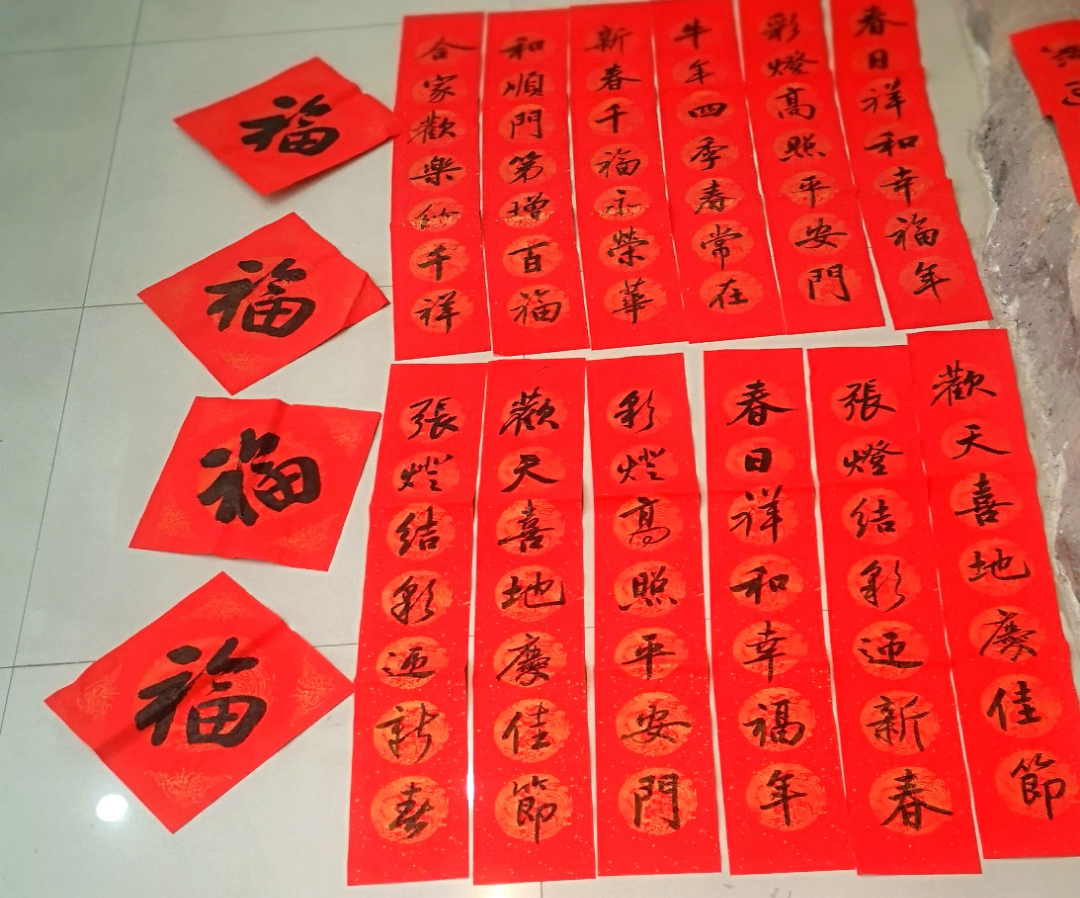 福
福
福
福
合家歡樂納千祥
和順門第增百福
新春千福永榮華
牛年四季春常在
彩燈高照平安門
春日祥和幸福年
張燈結彩迎新春
歡天喜地慶佳節
彩燈高照平安門
春日祥和幸福年
張燈結彩迎新春
歡天喜地慶佳節